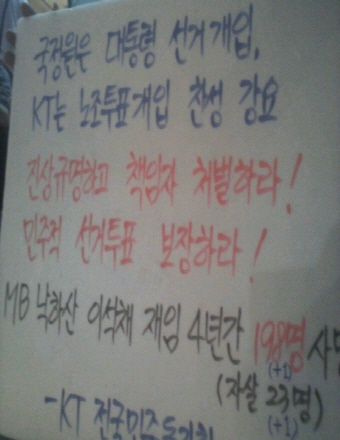 국정원은 대통령 선거개입,
KT는 노조투표개입 찬성 강요
진상규명하고 책임자 처벌하라!
민주적 선거투표 보장하라!
MB 낙하산 이석채 재임 4년간 198명 사망
(+1)
(자살 23명)
(+1)
-KT 전국민주동지회